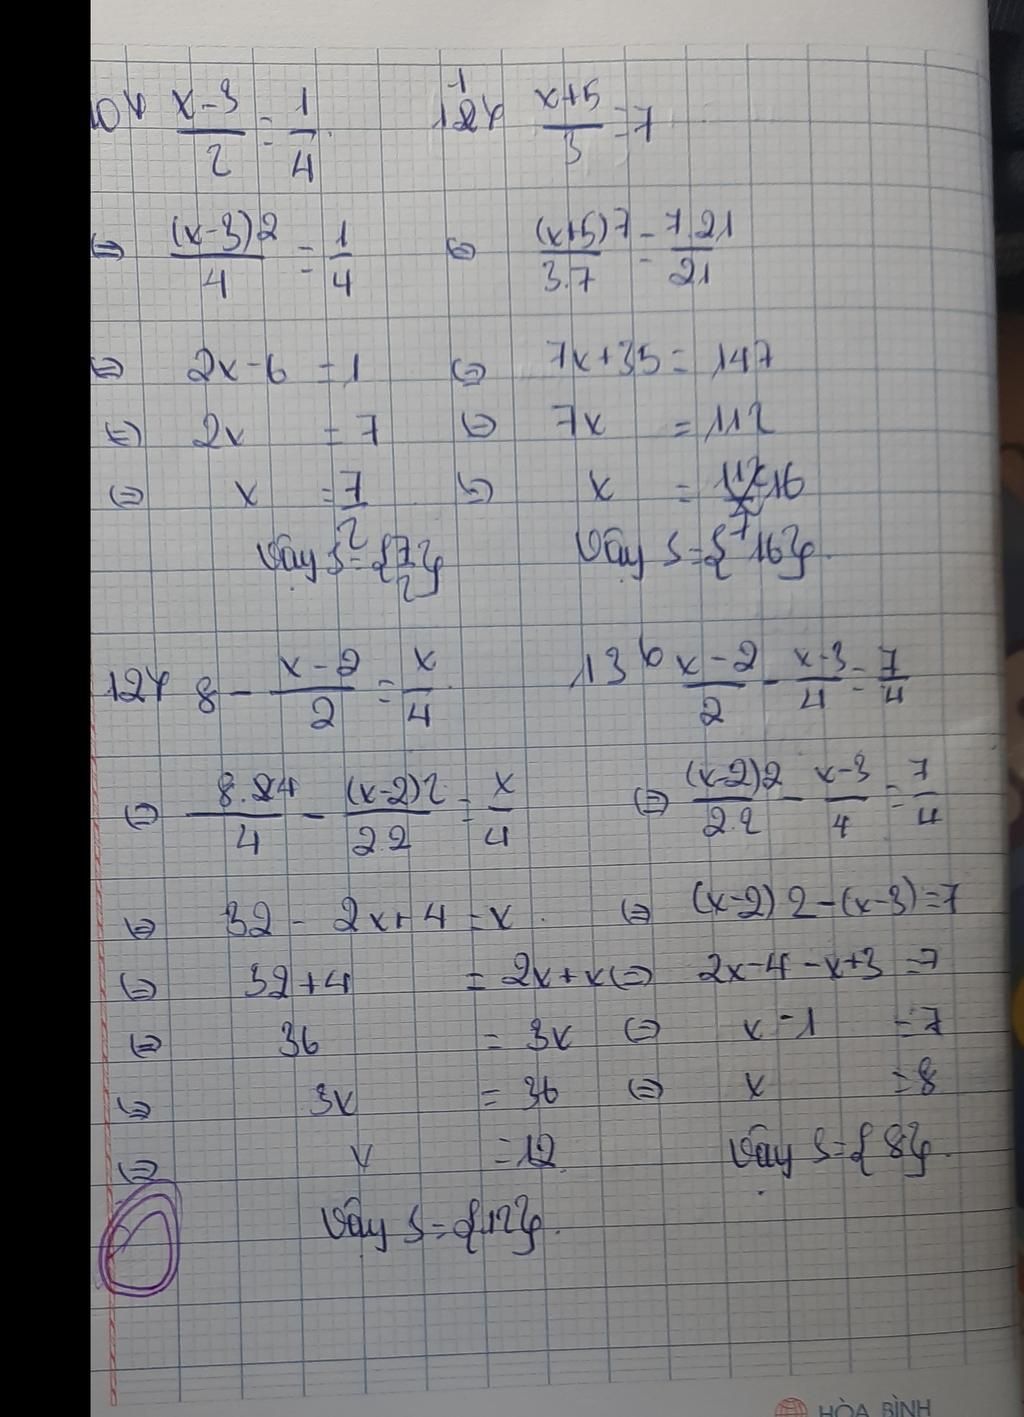 10/ (x-3)/2 = 1/4
⇔ (x-3)2/4 = 1/4
⇔ 2x-6 = 1
⇔ 2x = 7
⇔ x = 7/2
Vậy S = {7/2}
11/ (x+5)/3 = 7
⇔ (x+5)7/3.7 = 7.21/21
⇔ 7x+35 = 147
⇔ 7x = 112
⇔ x = 112/7 = 16
Vậy S = {16}.
12/ 8 - (x-2)/2 = x/4.
⇔ 8.4/4 - (x-2)2/2.2 = x/4
⇔ 32 - 2x+4 = x.
⇔ 32+4 = 2x+x
⇔ 36 = 3x
⇔ 3x = 36
⇔ x = 12.
Vậy S = {12}.
13/ (x-2)/2 - (x-3)/4 = 7/4
⇔ (x-2)2/2.2 - (x-3)/4 = 7/4
⇔ (x-2)2-(x-3)=7
⇔ 2x-4-x+3 = 7
⇔ x-1 = 7
⇔ x = 8
Vậy S = {8}.
HÒA BÌNH